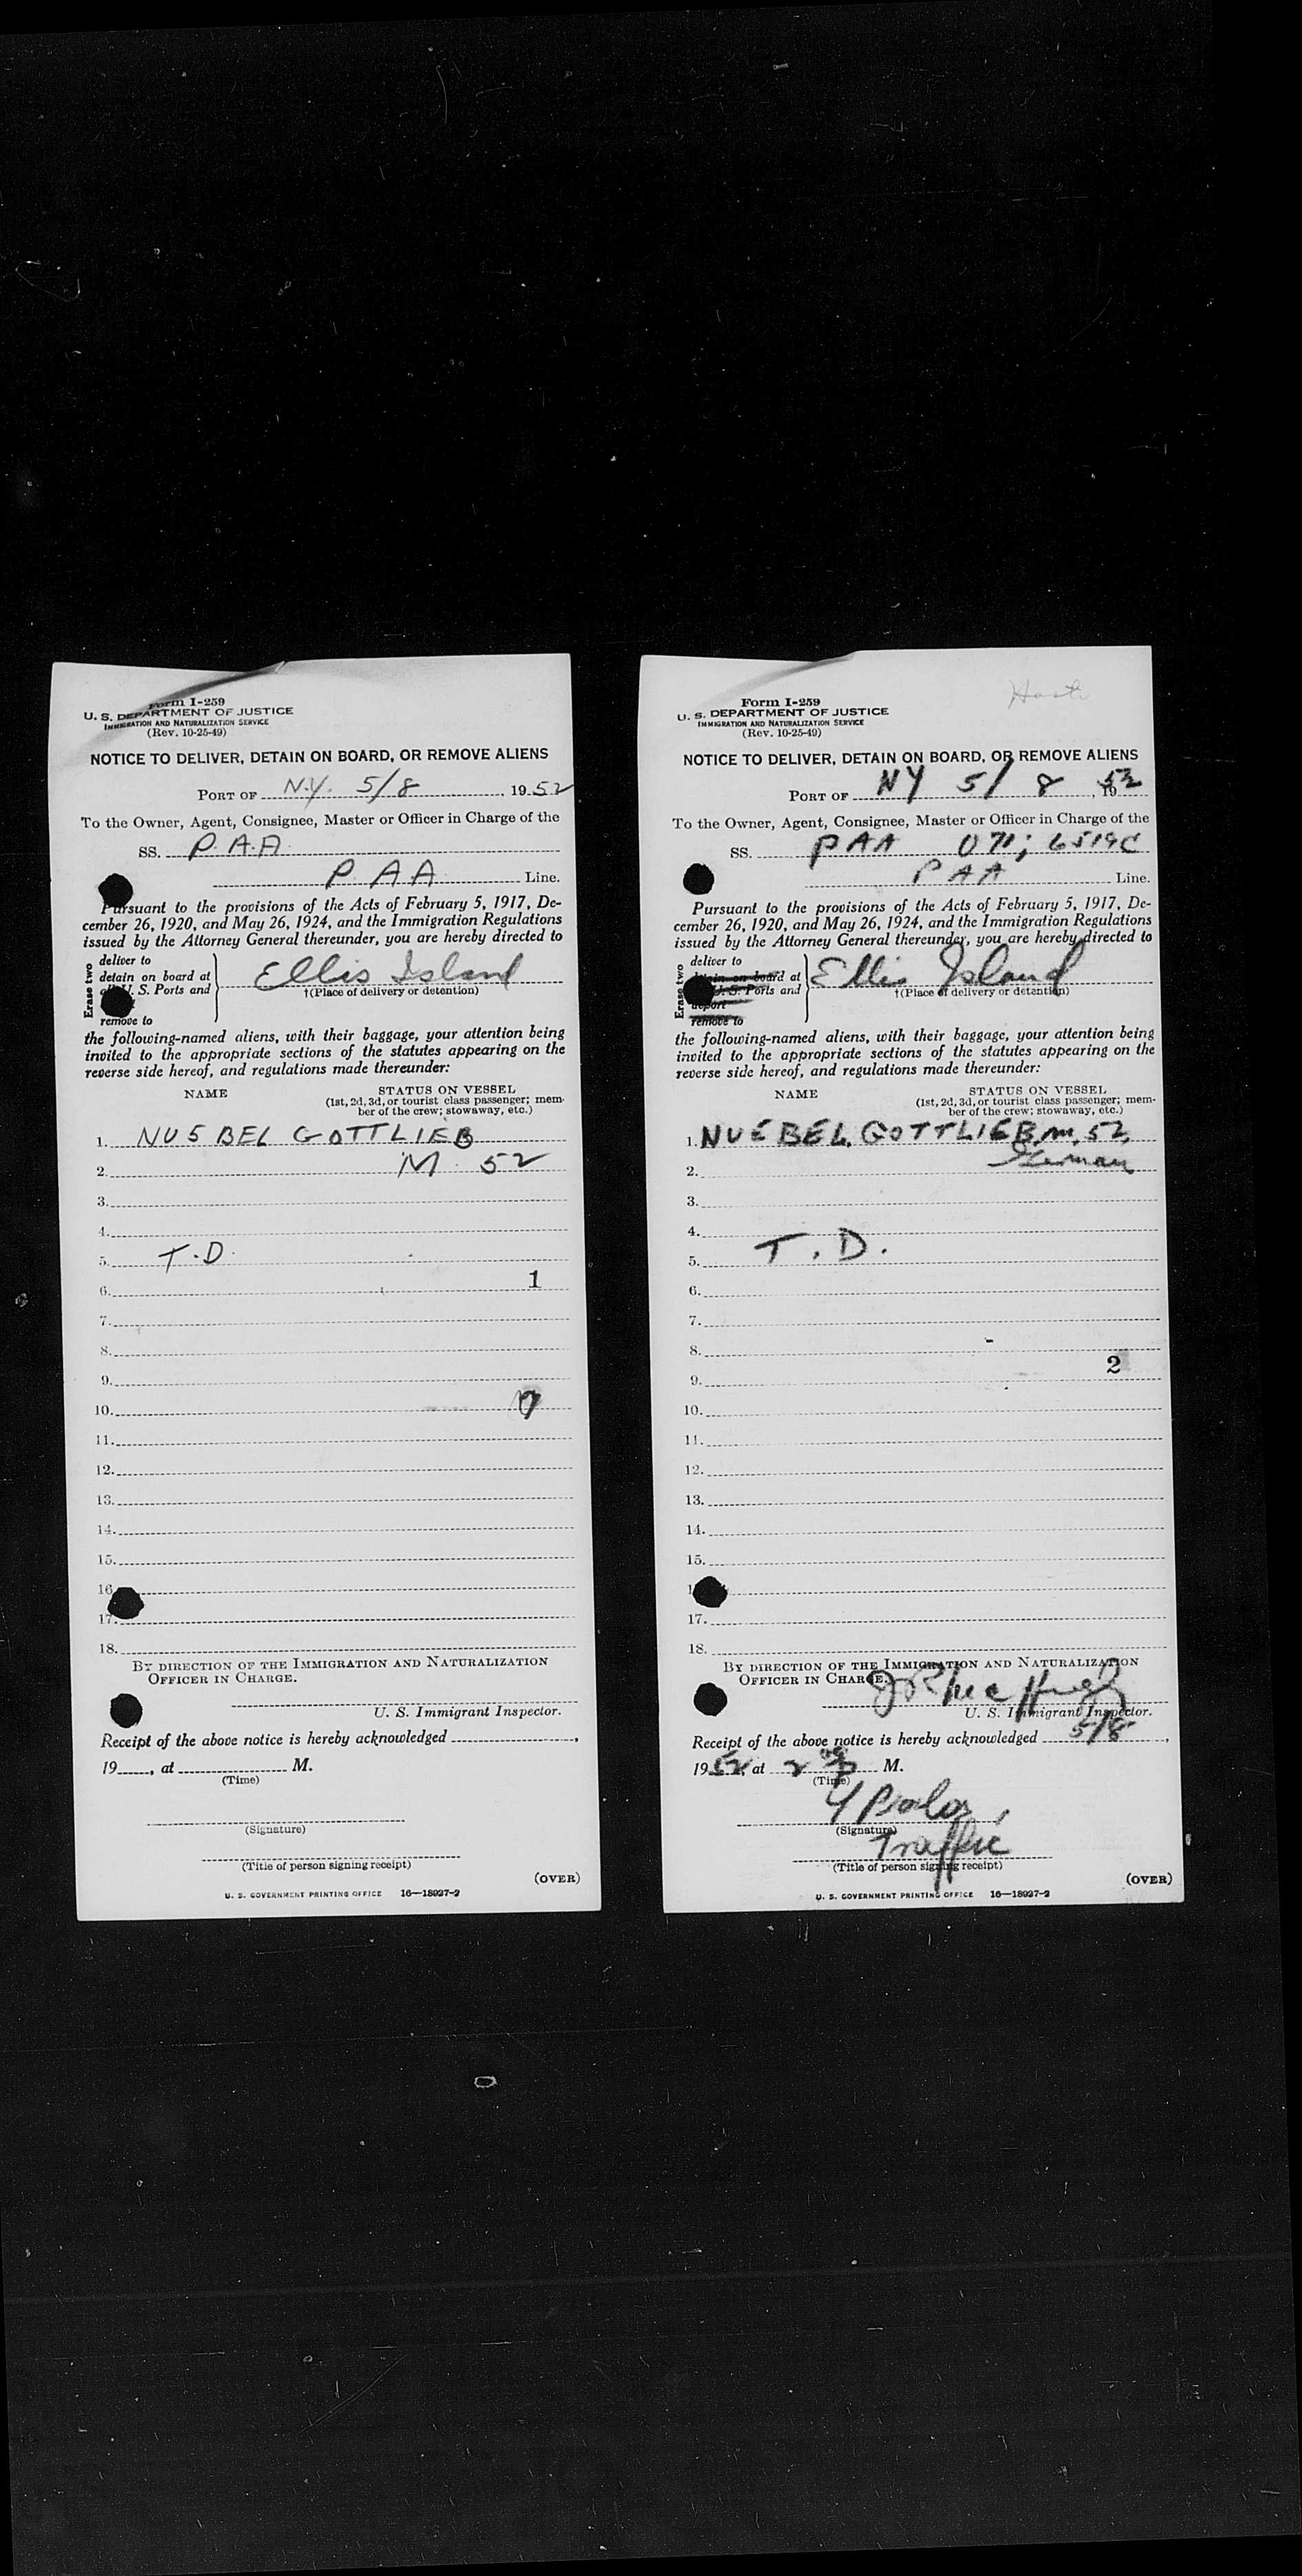 Form I-259
U. S. DEPARTMENT OF JUSTICE
IMMIGRATION AND NATURALIZATION SERVICE
(Rev. 10-25-49)
NOTICE TO DELIVER, DETAIN ON BOARD, OR REMOVE ALIENS
PORT OF N.Y. 5/8, 1952
To the Owner, Agent, Consignee, Master or Officer in Charge of the
SS. P.A.A
P A A Line.
Pursuant to the provisions of the Acts of February 5, 1917, De-
cember 26, 1920, and May 26, 1924, and the Immigration Regulations
issued by the Attorney General thereunder, you are hereby directed to
Erase two
deliver to
detain on board at
U. S. Ports and
remove to
Ellis Island
†(Place of delivery or detention)
the following-named aliens, with their baggage, your attention being
invited to the appropriate sections of the statutes appearing on the
reverse side hereof, and regulations made thereunder:
NAME STATUS ON VESSEL
(1st, 2d, 3d, or tourist class passenger; mem-
ber of the crew; stowaway, etc.)
1. NUSBEL GOTTLIEB
2. M 52
3.
4.
5. T.D.
6. 1
7.
8.
9.
10.
11.
12.
13.
14.
15.
16.
17.
18.
BY DIRECTION OF THE IMMIGRATION AND NATURALIZATION
OFFICER IN CHARGE.
U. S. Immigrant Inspector.
Receipt of the above notice is hereby acknowledged ,
19 , at M.
(Time)
(Signature)
(Title of person signing receipt)
(OVER)
U. S. GOVERNMENT PRINTING OFFICE 16—18927-2
Form I-259
U. S. DEPARTMENT OF JUSTICE
IMMIGRATION AND NATURALIZATION SERVICE
(Rev. 10-25-49)
NOTICE TO DELIVER, DETAIN ON BOARD, OR REMOVE ALIENS
PORT OF NY 5/8, 1952
To the Owner, Agent, Consignee, Master or Officer in Charge of the
SS. PAA 071; 6519C
PAA Line.
Pursuant to the provisions of the Acts of February 5, 1917, De-
cember 26, 1920, and May 26, 1924, and the Immigration Regulations
issued by the Attorney General thereunder, you are hereby directed to
Erase two
deliver to
detain on board at
U. S. Ports and
deport
remove to
Ellis Island
†(Place of delivery or detention)
the following-named aliens, with their baggage, your attention being
invited to the appropriate sections of the statutes appearing on the
reverse side hereof, and regulations made thereunder:
NAME STATUS ON VESSEL
(1st, 2d, 3d, or tourist class passenger; mem-
ber of the crew; stowaway, etc.)
1. NUEBEL, GOTTLIEB, m, 52,
2. German
3.
4.
5. T.D.
6.
7.
8.
9. 2
10.
11.
12.
13.
14.
15.
17.
18.
BY DIRECTION OF THE IMMIGRATION AND NATURALIZATION
OFFICER IN CHARGE.
U. S. Immigrant Inspector.
Receipt of the above notice is hereby acknowledged 5/8,
1952, at 2 M.
(Time)
(Signature)
Traffic
(Title of person signing receipt)
(OVER)
U. S. GOVERNMENT PRINTING OFFICE 16—18927-2